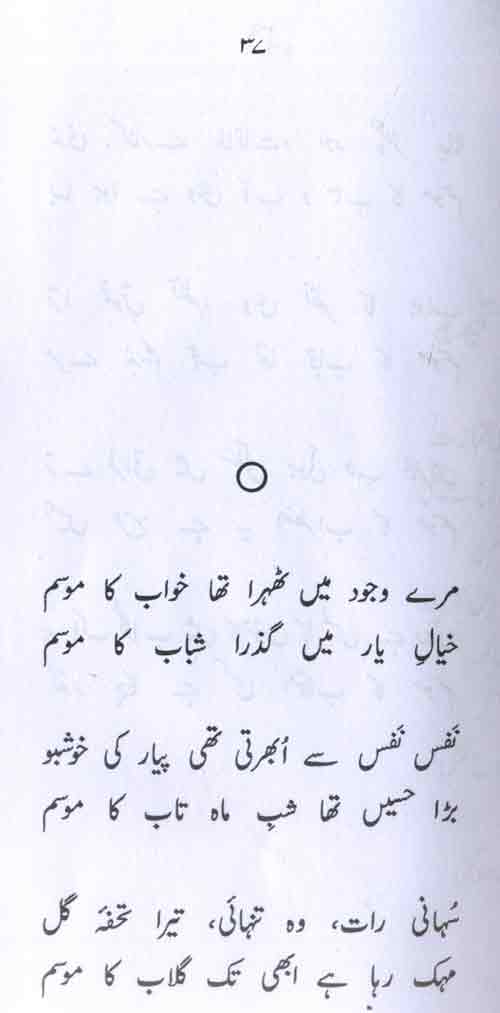 ۳۷
مرے وجود میں ٹھہرا تھا خواب کا موسم
خیالِ یار میں گذرا شباب کا موسم
نَفس نَفس سے اُبھرتی تھی پیار کی خوشبو
بڑا حسیں تھا شبِ ماہ تاب کا موسم
سُہانی رات، وہ تنہائی، تیرا تحفۂ گل
مہک رہا ہے ابھی تک گلاب کا موسم